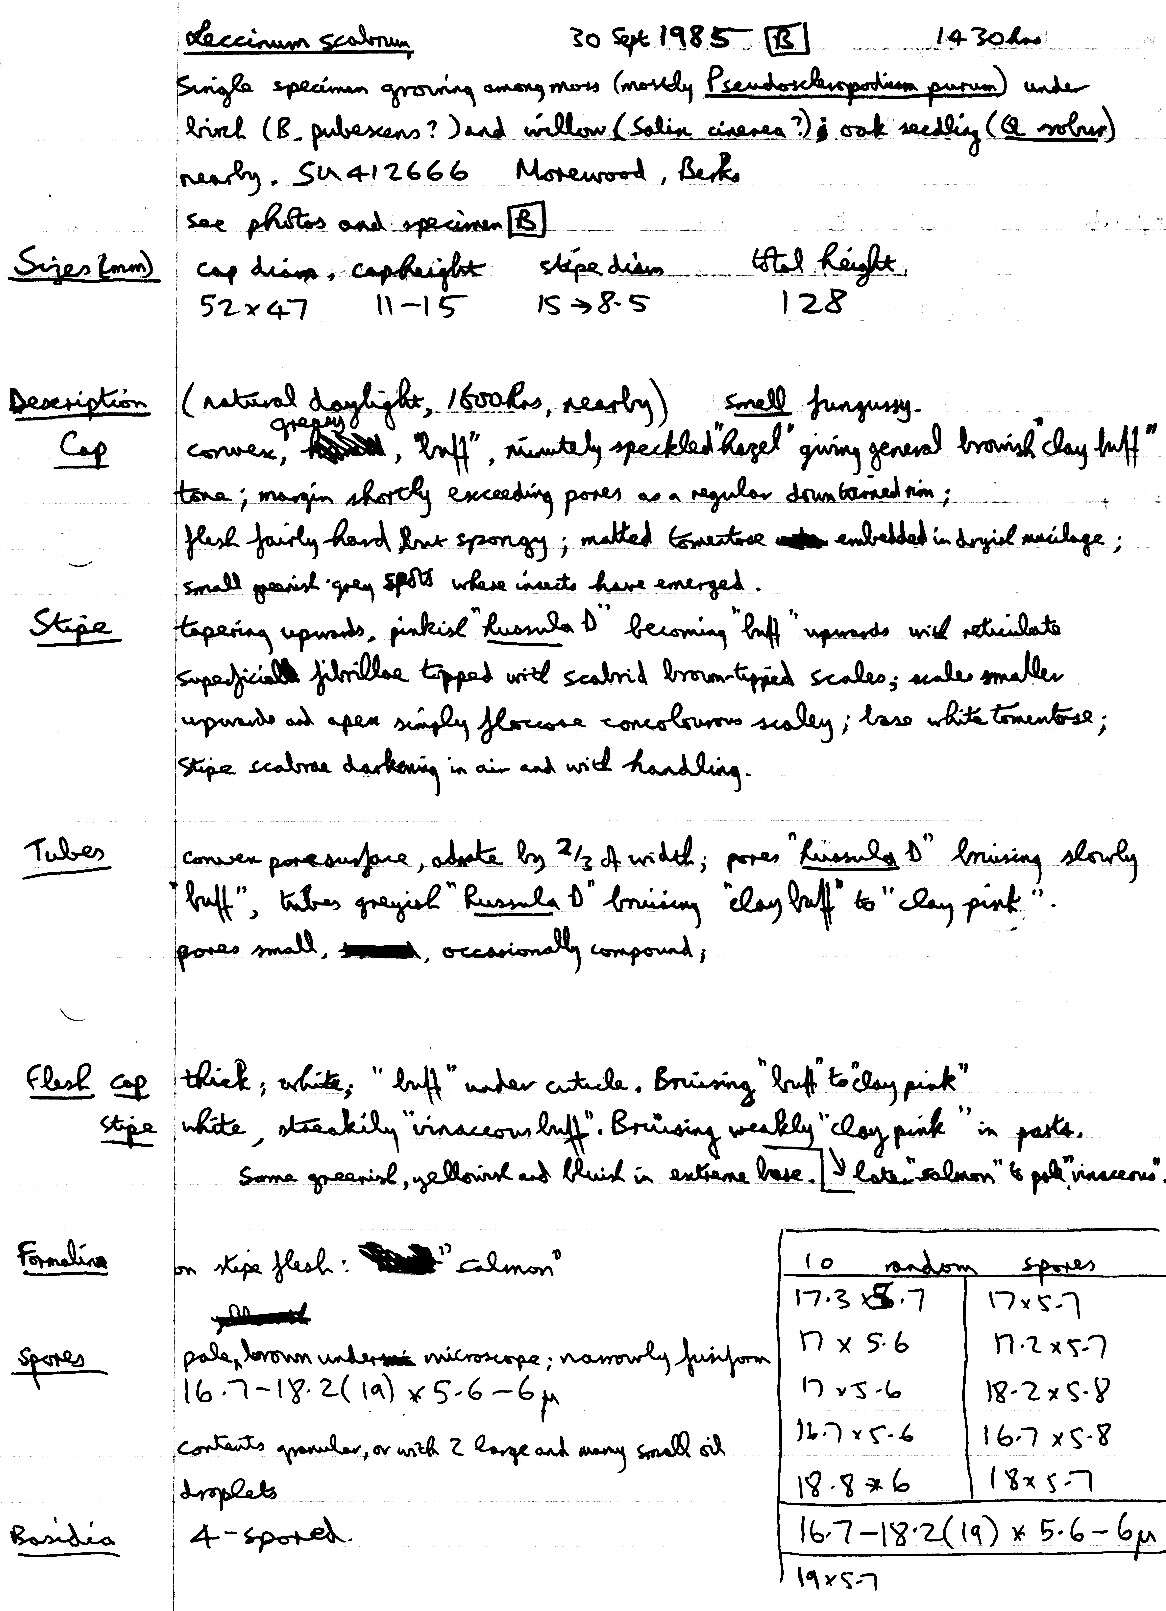 Leccinum scabrum 30 Sept 1985 B 1430hrs
Single specimen growing among moss (mostly Pseudoscleropodium purum) under
birch (B. pubescens?) and willow (Salix cinerea?); oak seedling (Q robur)
nearby. SU412666 Morewood, Berks
see photos and specimen B
Sizes (mm) cap diam, cap height stipe diam total height
52 x 47 11-15 15→8.5 128
Description (natural daylight, 1600hrs, nearby) small fungussy.
greyish
Cap convex, , "buff", minutely speckled "hazel" giving general brownish "clay buff"
tone; margin shortly exceeding pores as a regular downturned rim;
flesh fairly hard but spongy; matted tomentose embedded in dryish mucilage;
small greenish-grey spots where insects have emerged.
Stipe tapering upwards, pinkish "Russula D" becoming "buff" upwards with reticulate
superficial fibrillae topped with scabrid brown-tipped scales; scales smaller
upwards and apex simply floccose concolourous scaley; base white tomentose;
stipe scabrae darkening in air and with handling.
Tubes convex pore surface, adnate by 2/3 of width; pores "Russula D" bruising slowly
"buff", tubes greyish "Russula D" bruising "clay buff" to "clay pink".
pores small, , occasionally compound;
Flesh cap thick; white; "buff" under cuticle. Bruising "buff" to "clay pink"
stipe white, streakily "vinaceous buff". Bruising weakly "clay pink" in parts.
Some greenish, yellowish and bluish in extreme base. later "salmon" to pale "vinaceous".
Formalin on stipe flesh: "salmon"
Spores pale, brown under microscope; narrowly fusiform
16.7-18.2(19) x 5.6-6µ
contents granular, or with 2 large and many small oil
droplets
Basidia 4-spored.
10 random spores
17.3 x 5.7 17 x 5.7
17 x 5.6 17.2 x 5.7
17 x 5.6 18.2 x 5.8
16.7 x 5.6 16.7 x 5.8
18.8 x 6 18 x 5.7
16.7-18.2(19) x 5.6-6µ
19 x 5.7